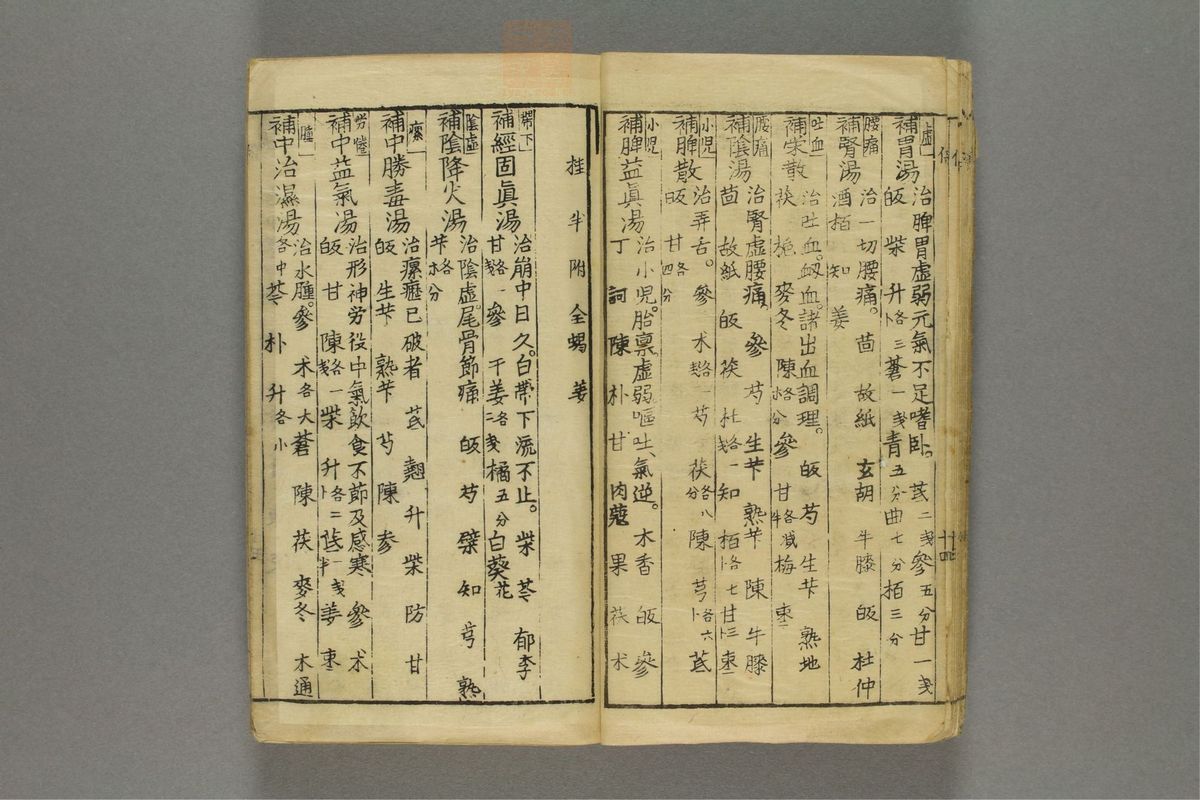 虛
補胃湯
治脾胃虛弱元氣不足嗜卧。芪二戋參五分甘一戋
皈 柴 升各三卜蒼一戋青五分曲七分栢三分
腰痛
補腎湯
治一切腰痛。茴 故紙 玄胡 牛膝 皈 杜仲
酒栢 知 姜
吐血
補栄散
治吐血衂血諸出血調理。 皈 芍 生芐 熟地
茯 梔 麥冬 陳各分 參 甘各减半 梅 枣
腰痛
補陰湯
治腎虛腰痛 參 芍 生芐 熟芐 陳 牛膝
茴 故紙 皈 茯 杜各一戋 知 栢各七卜 甘三卜 枣
小児
補脾散
治弄舌。參 术各一戋 芍 茯各八分 陳 芎各六卜 芪
皈 甘各四分
小児
補脾益眞湯
治小児胎禀虛弱嘔吐氣逆。木香 皈 參
丁 訶 陳 朴 甘 肉蔻 果 茯 术
桂 半 附 全蝎 姜
帶下
補經固眞湯
治崩中日久。白帶下流不止。柴 苓 郁李
甘各一戋 參 干姜各二戋 橘五分 白葵花
陰虛
補陰降火湯
治陰虛。尾骨節痛 皈 芍 檗 知 芎 熟
芐各分
瘰
補中勝毒湯
治瘰癧已破者 芪 翹 升 柴 防 甘
皈 生芐 熟芐 芍 陳 參
労惓
補中益氣湯
治形神労役中氣飮食不節及感寒 參 术
皈 甘 陳各一戋 柴 升各二卜 芪一戋半 姜 枣
腫
補中治濕湯
治水腫。參 术各大 蒼 陳 茯 麥冬 木通
各中 芩 朴 升各小